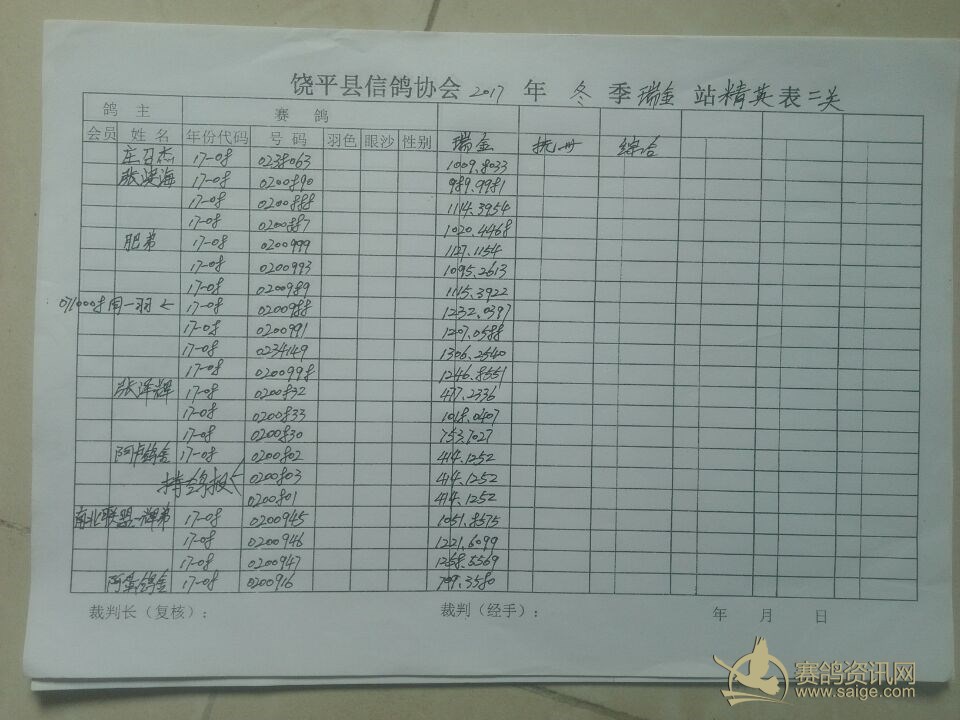 饶平县信鸽协会 2017 年 冬 季 瑞金 站精英表 二关
鸽 主 赛 鸽
会员 姓 名 年份代码 号 码 羽色 眼沙 性别 瑞金 综合
庄召杰 17-08 0238063 1009.8033
张洪海 17-08 0200890 989.9981
17-08 0200888 1114.3954
17-08 0200887 1020.4468
肥弟 17-08 0200999 1127.1154
17-08 0200993 1095.2613
17-08 0200989 1115.3922
同一羽 17-08 0200988 1232.0397
17-08 0200991 1207.0588
17-08 0234149 1306.2540
17-08 0200998 1246.8551
张泽辉 17-08 0200832 477.2336
17-08 0200833 1018.0407
17-08 0200830 753.7027
阿卢鸽舍 17-08 0200802 414.1252
0200803 414.1252
0200801 414.1252
南北联盟-辉弟 17-08 0200945 1051.8575
17-08 0200946 1221.6099
17-08 0200947 1258.5569
鸽舍 17-08 0200916 709.3580
裁判长（复核）： 裁判（经手）： 年 月 日
赛鸽资讯网
www.saige.com